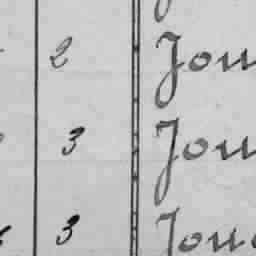 2 Jou
3 Jou
3 Jou